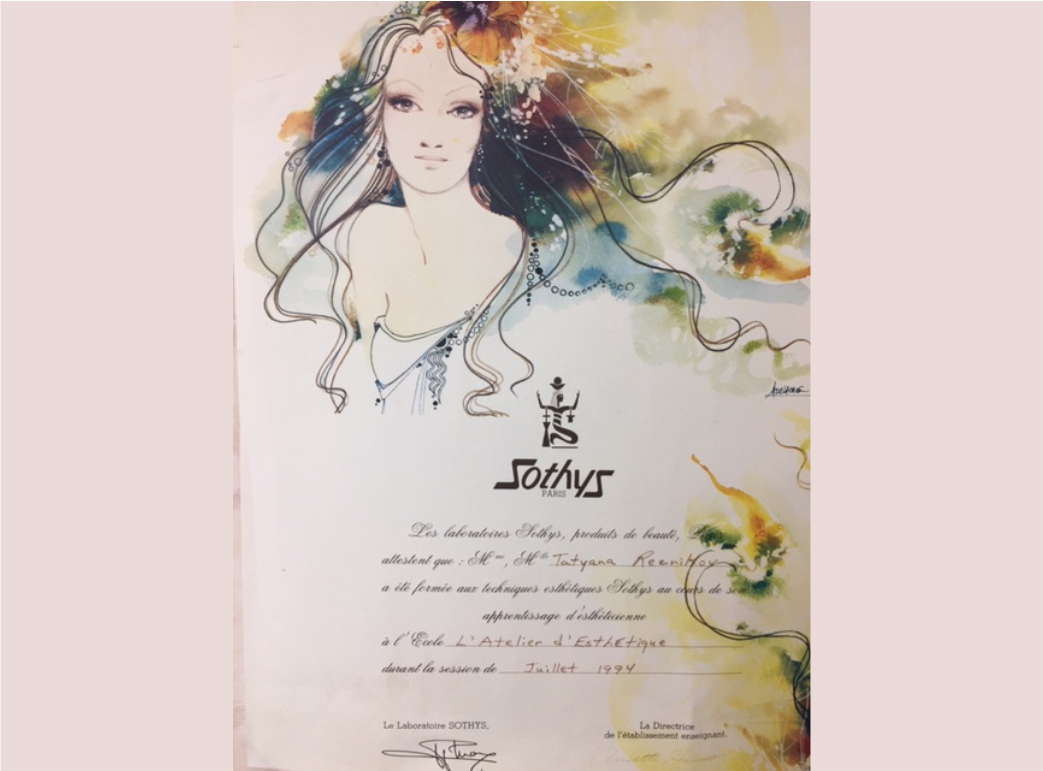 Sothys
PARIS
Les laboratoires Sothys, produits de beauté,
attestent que : Mme, Mlle Tatyana Reznikov
a été formée aux techniques esthétiques Sothys au cours de son
apprentissage d'esthéticienne
à l'Ecole L'Atelier d'EsthEtique
durant la session de Juillet 1994
Le Laboratoire SOTHYS,
La Directrice
de l'établissement enseignant,